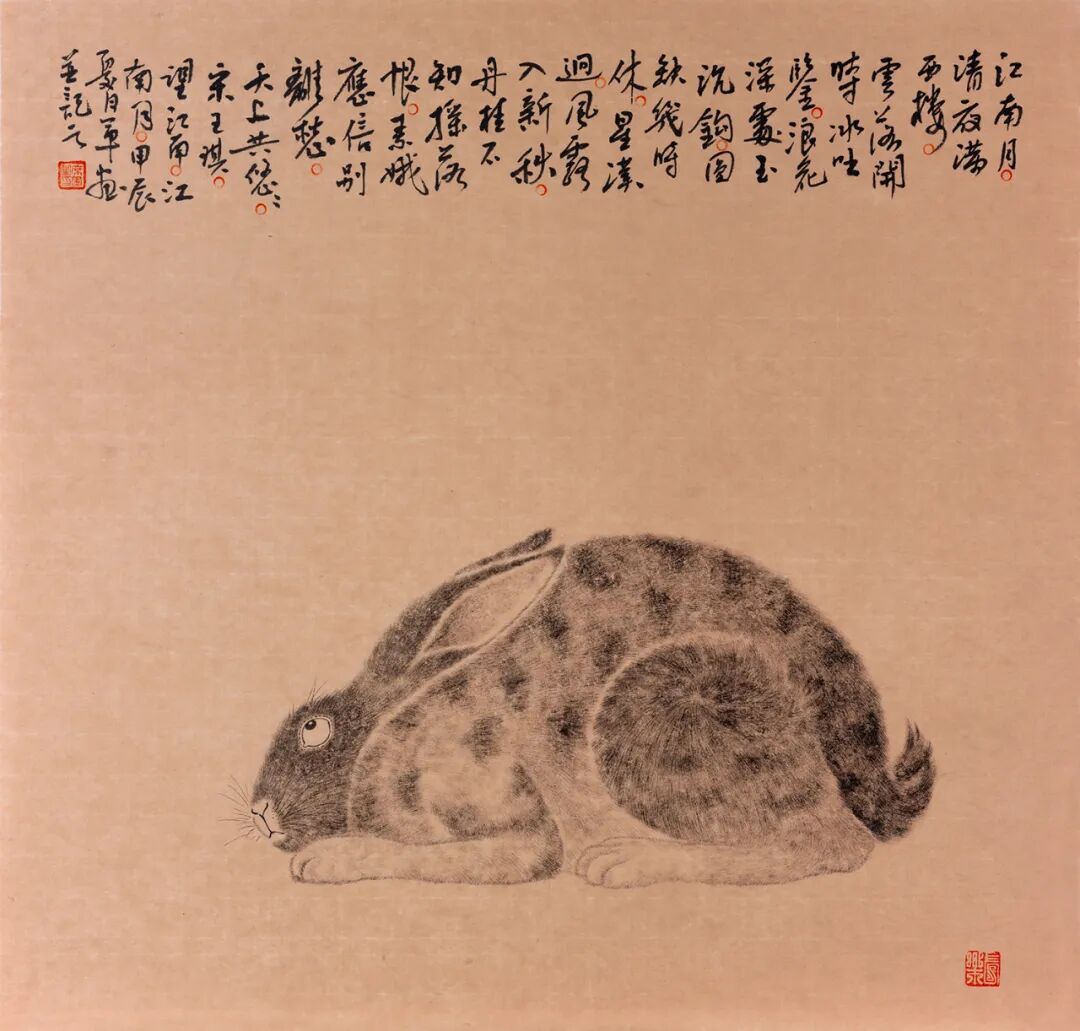 江南月
清夜滿
西樓
雲落開
時冰吐
鑒浪花
深處玉
沉鉤圓
缺幾時
休星漢
迥風露
入新秋
丹桂不
知搖落
恨素娥
應信別
離愁
天上共悠〻
宋王琪
望江南江
南月甲辰
夏日軍畫
並記之